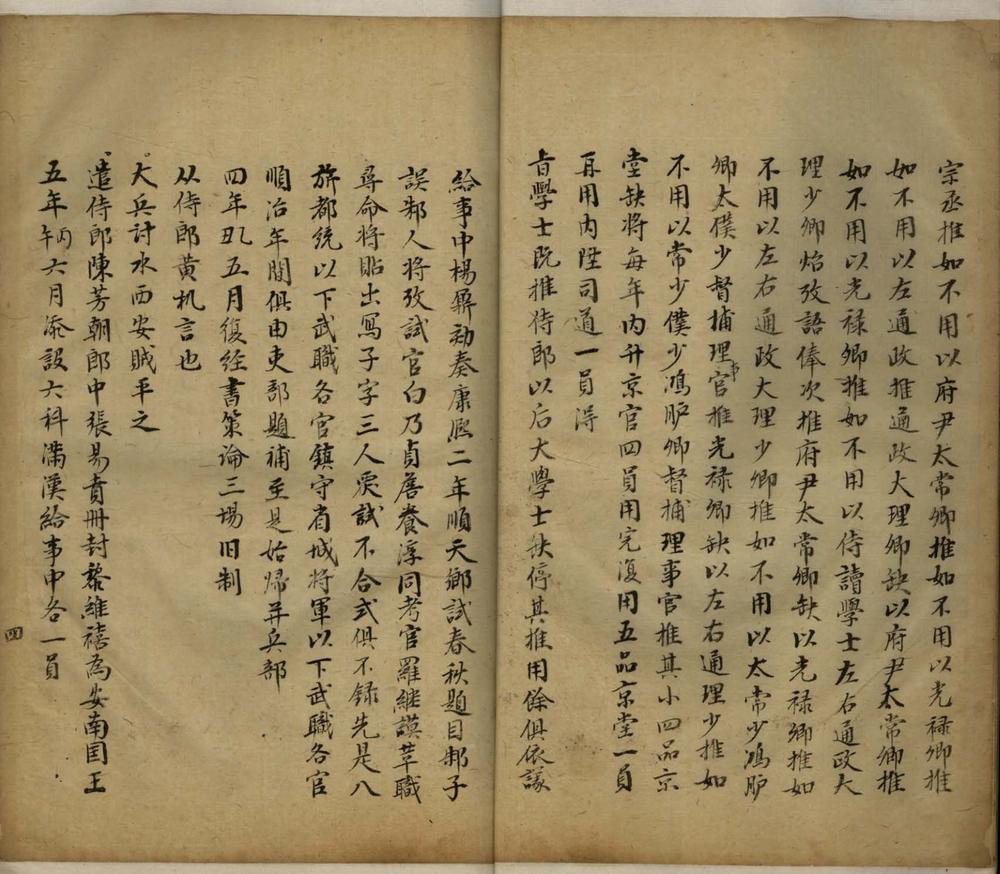 宗丞推如不用以府尹太常卿推如不用以光禄卿推
如不用以左通政推通政大理卿缺以府尹太常卿推
如不用以光禄卿推如不用以侍讀學士左右通政大
理少卿焰攷語俸次推府尹太常卿缺以光禄卿推如
不用以左右通政大理少卿推如不用以太常少鴻胪
卿太僕少督捕理事官推光禄卿缺以左右通理少推如
不用以常少僕少鴻胪卿督捕理事官推其小四品京
堂缺将每年内升京官四員用完復用五品京堂一員
再用内陞司道一員得
旨學士既推侍郎以后大學士缺停其推用餘俱依議
給事中楊鼐劾奏康熙二年順天鄉試春秋題目邾子
誤邾人将攷試官白乃貞詹養淳同考官羅继謨革職
尋命将貼出寫子字三人覆試不合式俱不録先是八
旂都統以下武職各官鎮守省城將軍以下武職各官
順治年間俱由吏部題補至是始歸并兵部
四年乙丑五月復经書策論三場旧制
从侍郎黄机言也
大兵討水西安賊平之
遣侍郎陳芳朝郎中張易賁册封黎維禧為安南囯王
五年丙午六月添設六科满漢給事中各一員
四